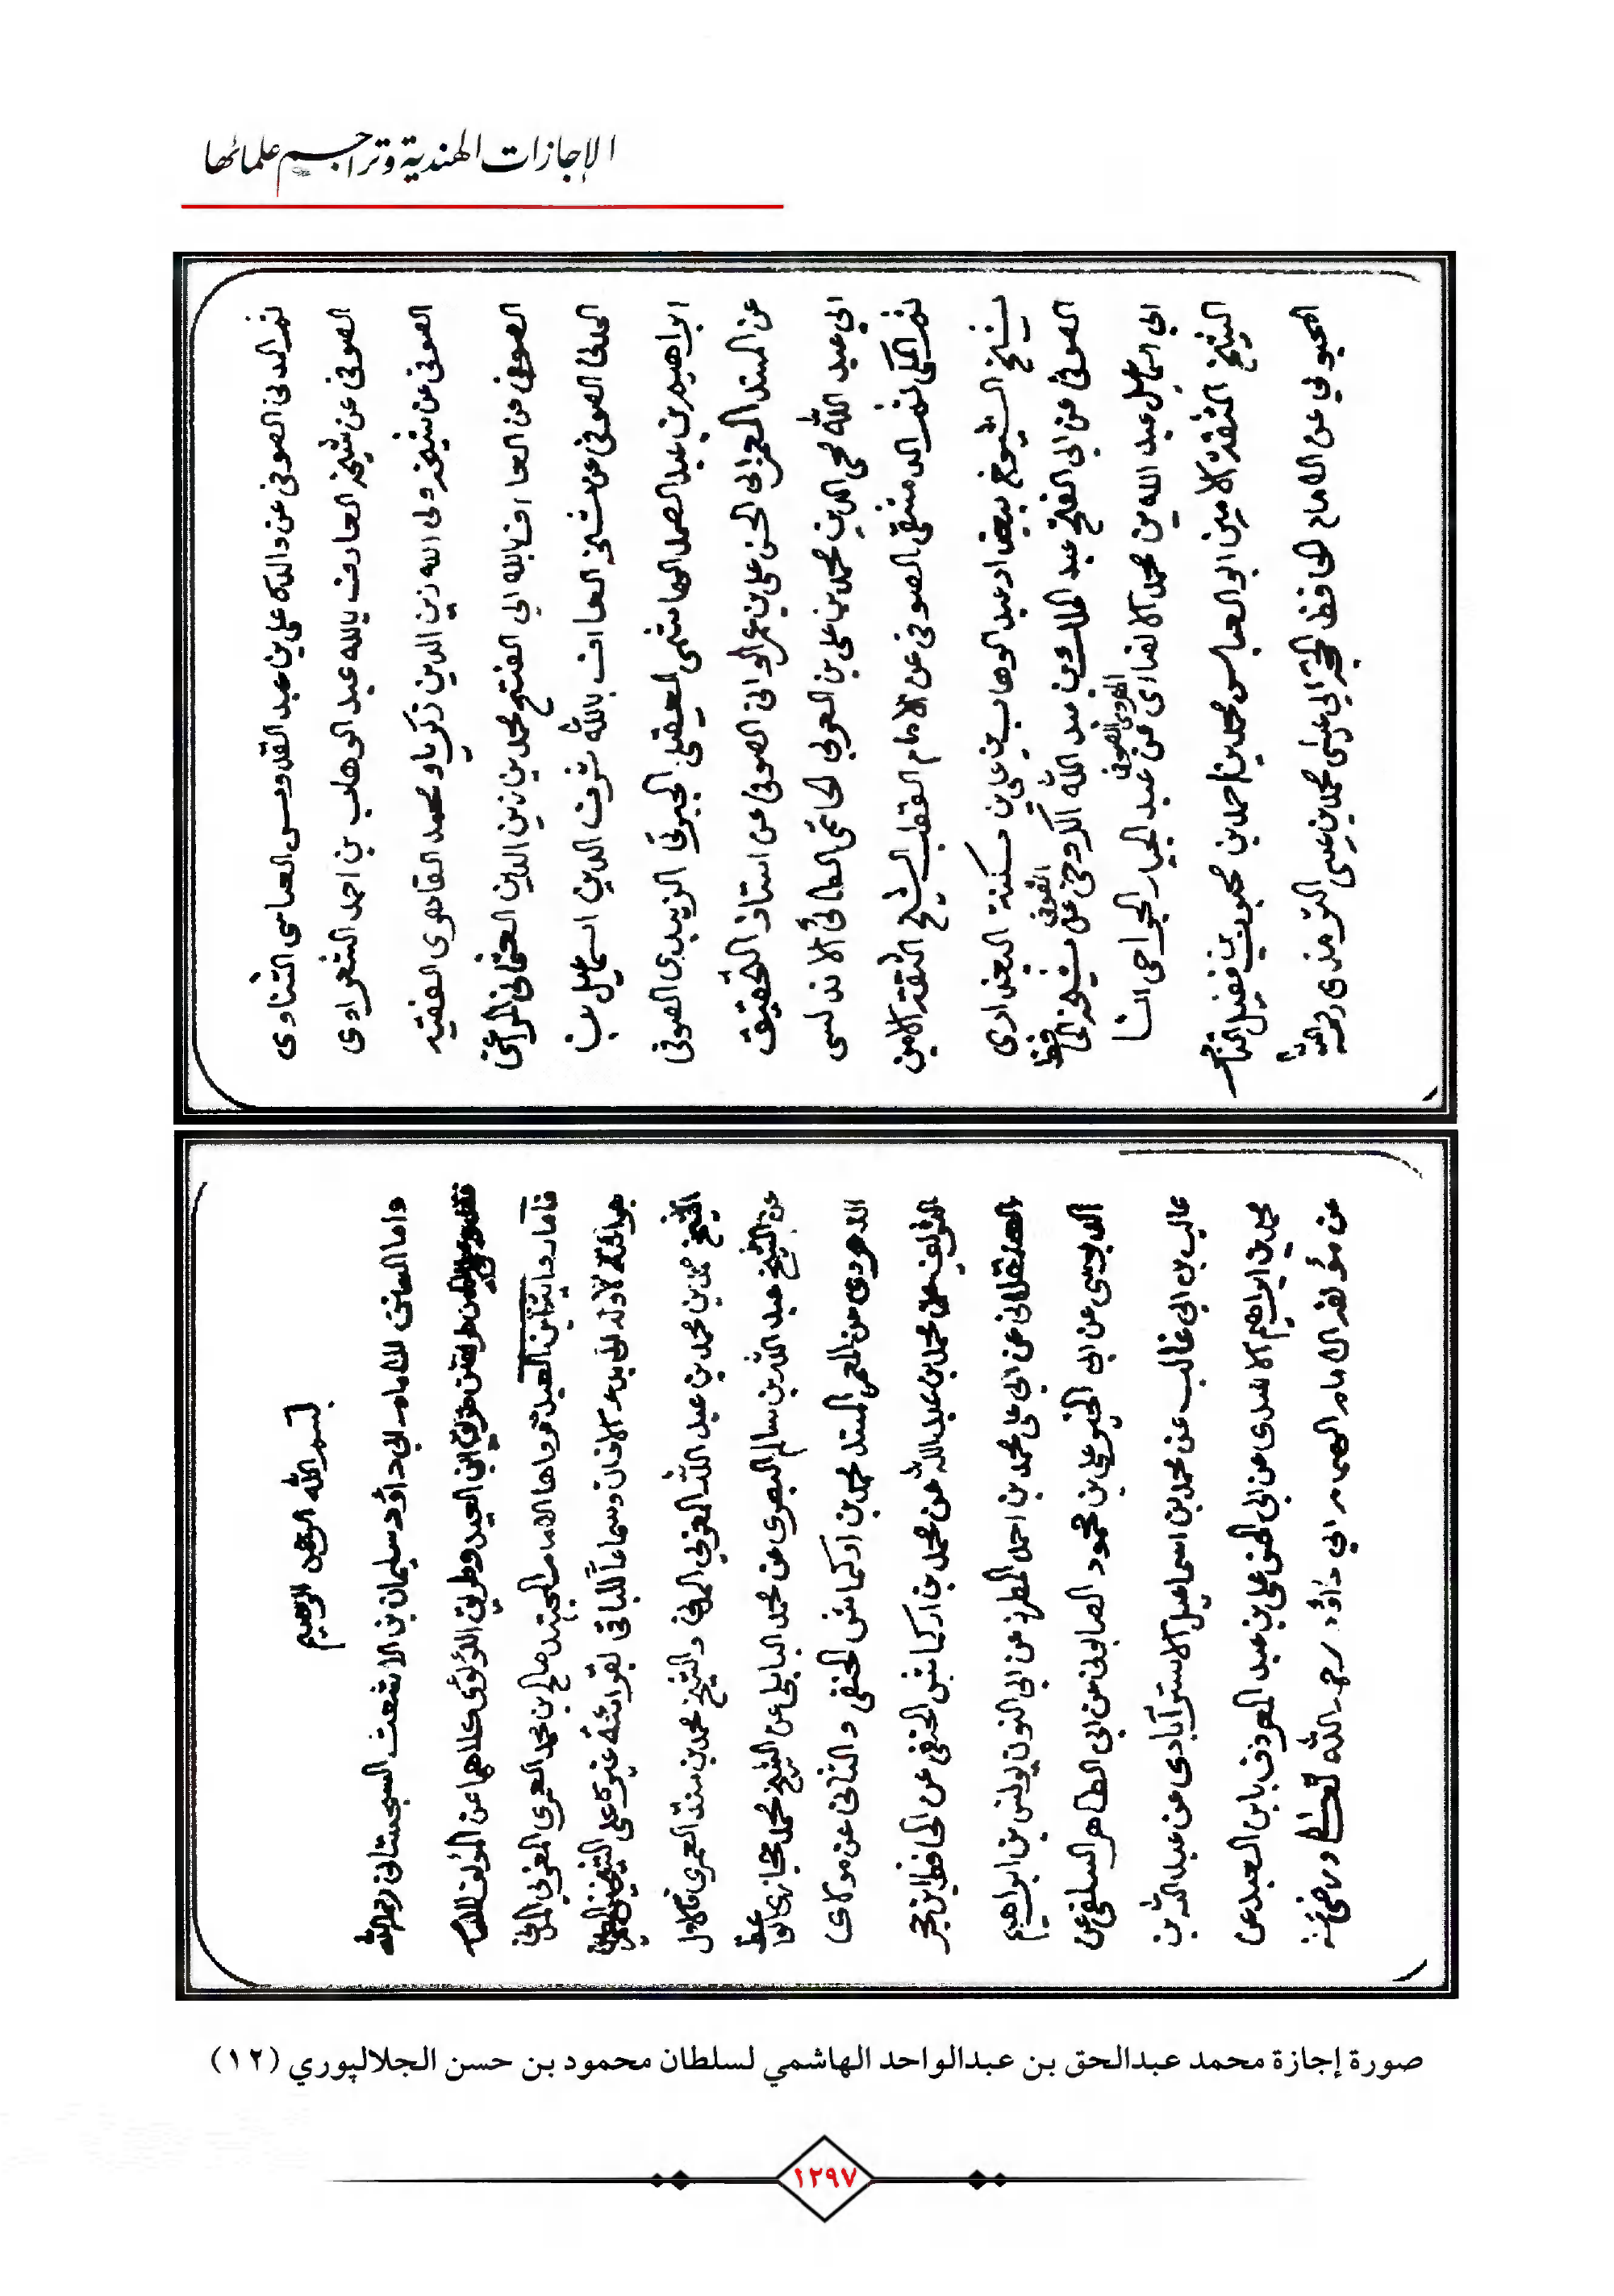 الإجازات الهندية وتراجم علمائها
ثم المدني الصوفي عن والده علي بن عبد القدوس العباسي الشناوي
الصوفي عن شيخه العارف بالله عبد الوهاب بن احمد الشعراوي
الصوفي عن شيخه ولي الله زين الدين زكريا و محمد القاهري الفقيه
الصوفي عن العارف بالله الي الفتح محمد بن زين الدين العثماني المراغي
المدني الصوفي عن شيخه العارف بالله شرف الدين اسماعيل بن
ابراهيم بن عبد الصمد الهاشمي العقيلي الجبرتي الزبيدي الصوفي
عن المسند المعمر ابي الحسن علي بن عمر الواني الصوفي عن استاذ التحقيق
ابي عبد الله محي الدين محمد بن علي بن العربي الحاتمي الطائي الاندلسي
ثم المكي ثم الدمشقي الصوفي عن الامام القطب الشيخ الثقة الامين
شيخ الشيوخ ببغداد عبد الوهاب بن علي بن سكينة البغدادي
الصوفي عن ابي الفتح عبد الملك بن عبد الله الكروخي الصوفي عن شيخه الحافظ
ابي اسماعيل عبد الله بن محمد الانصاري الهروي الصوفي عن عبد الجبار الجراحي انبأ
الشيخ الثقة الامين ابو العباس محمد بن احمد بن محبوب بن فضيل التاجر
المحبوبي عن الامام الحافظ الحجة ابي عيسى محمد بن عيسى الترمذي رحمه الله
بسم الله الرحمن الرحيم
واما السنن للامام ابي داؤد سليمان بن الاشعث السجستاني رحمه الله
طريق ابن العبد وطريق اللؤلؤي كلاهما عن المؤلف
فاما رواية ابن العبد فرواها الامام المجتهد صالح بن محمد العمري المغربي المدني
وسماعاً للباقي بقرائة غيره على الشيخين
الشيخ محمد بن محمد بن عبد الله المغربي المدني والشيخ محمد بن سنة العمري فالاول
عن الشيخ عبد الله بن سالم البصري عن محمد البابلي عن الشيخ محمد حجازي الواعظ
عن المعمر المسند محمد بن اركماش الحنفي والثاني عن مولاي
الشريف محمد بن عبد الله عن محمد بن اركماش الحنفي عن الحافظ ابن حجر
العسقلاني عن ابي علي محمد بن احمد المطرز عن ابي النون يونس بن ابراهيم
الدبوسي عن ابي الحسن علي بن محمود الصابوني عن ابي الطاهر السلفي عن
غالب بن ابي غالب عن محمد بن اسماعيل الاسترآبادي عن عبد الله بن
محمد بن ابراهيم الاسدي عن ابي الحسن علي بن عبد المعروف بابن العبد عن
عن مؤلفه الامام الهمام ابي داؤد رحمه الله تعالى ورضي عنه
صورة إجازة محمد عبدالحق بن عبدالواحد الهاشمي لسلطان محمود بن حسن الجلالپوري (١٢)
١٢٩٧